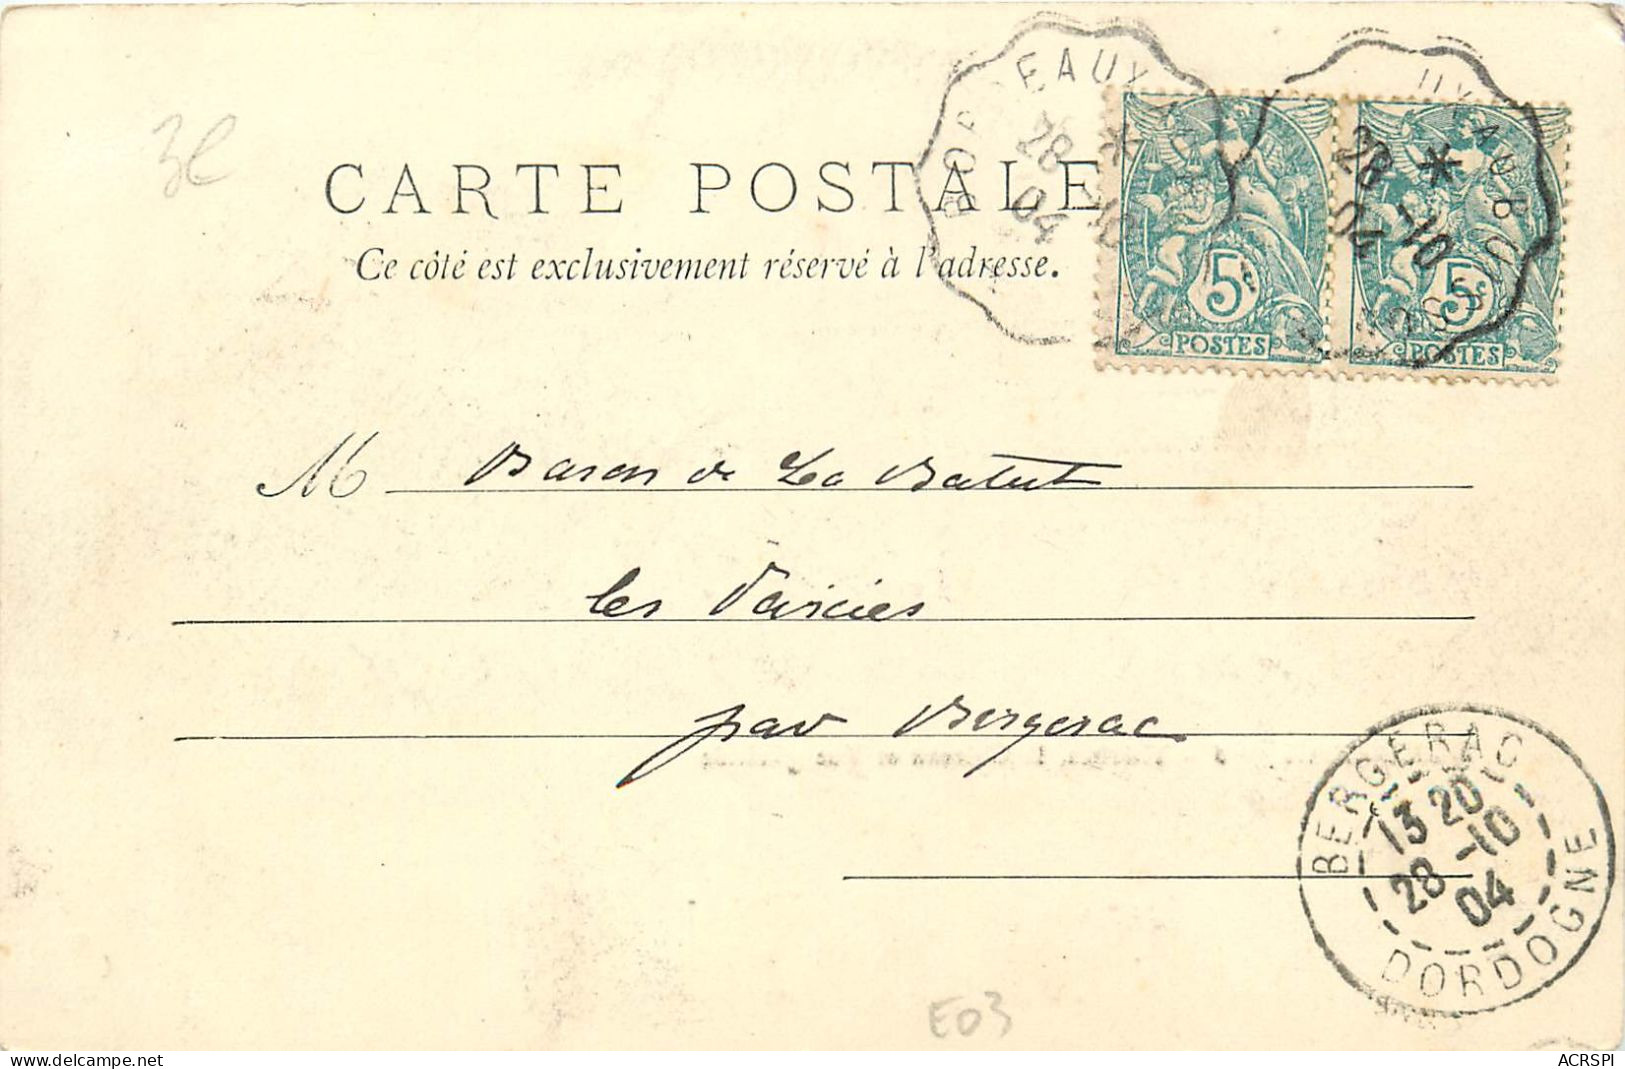 3€
CARTE POSTALE
Ce côté est exclusivement réservé à l'adresse.
BORDEAUX A AUB
28 -10
04
*
5c
POSTES
BORDEAUX A AUBUSSON
28 -10
04
*
5c
POSTES
M Baron de La Batut
les
par Bergerac
BERGERAC
13 20
28 -10
04
DORDOGNE
E03
ACRSPI